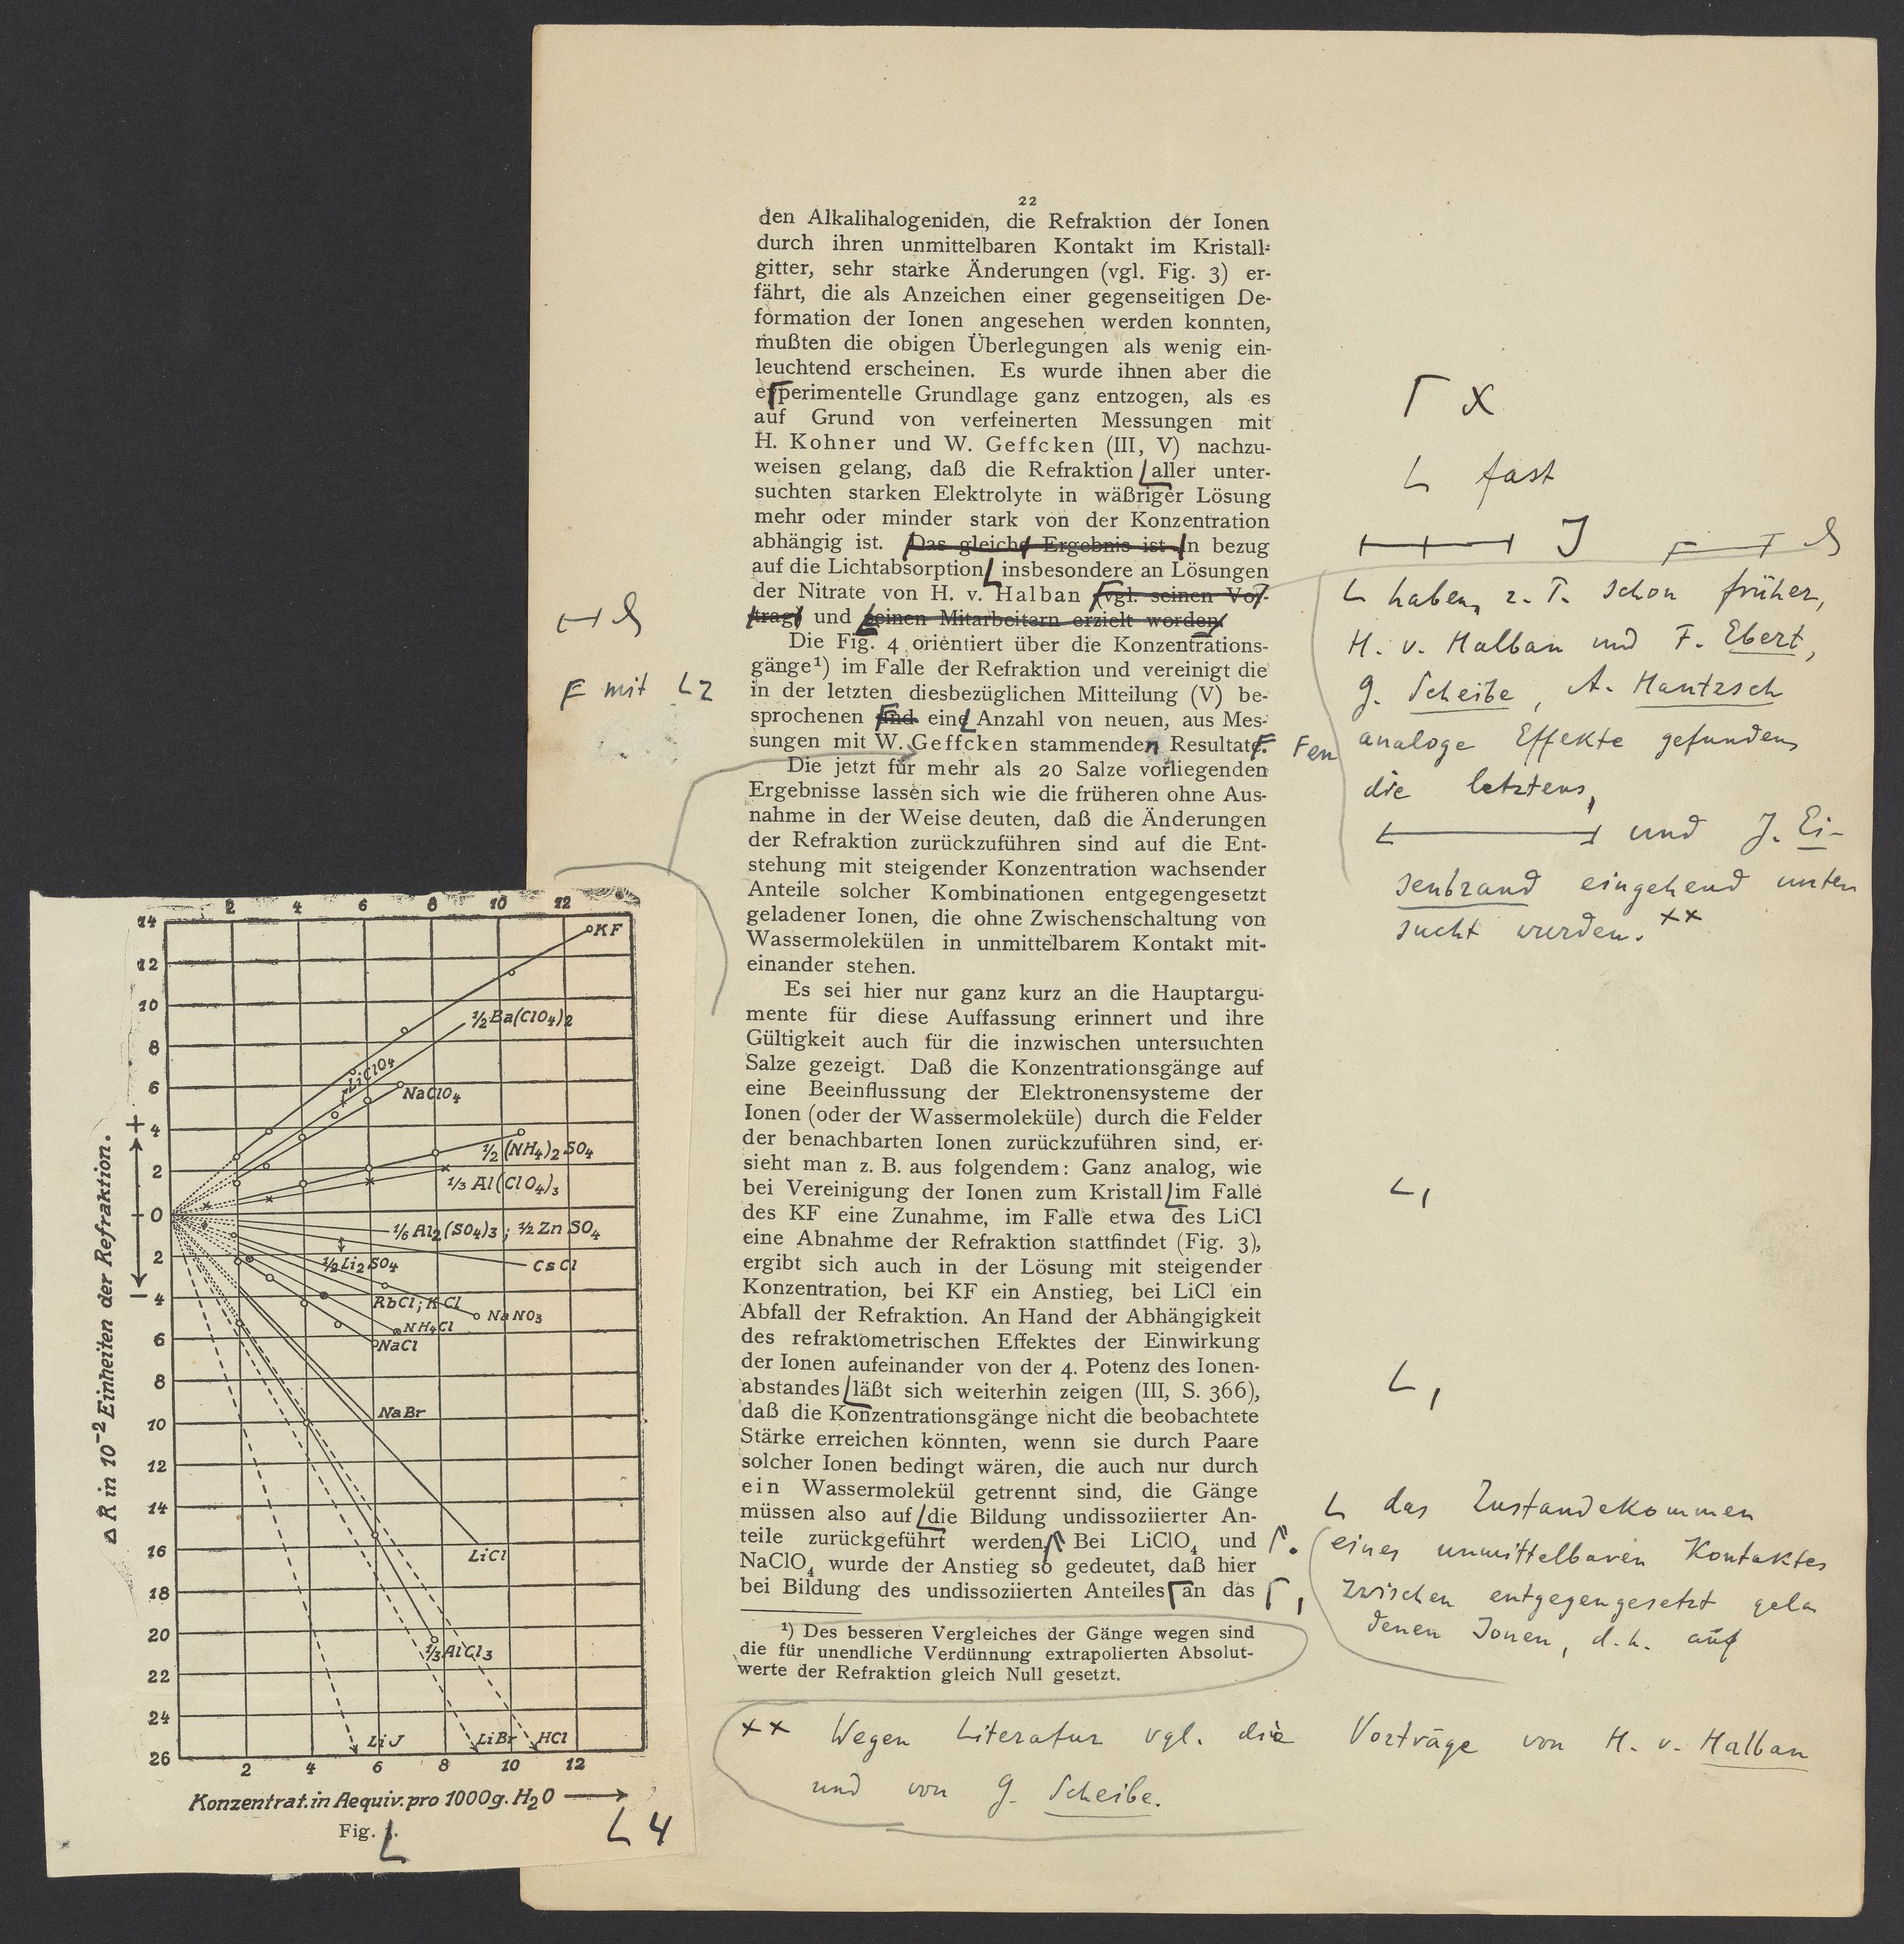 22
den Alkalihalogeniden, die Refraktion der Ionen
durch ihren unmittelbaren Kontakt im Kristall-
gitter, sehr starke Änderungen (vgl. Fig. 3) er-
fährt, die als Anzeichen einer gegenseitigen De-
formation der Ionen angesehen werden konnten,
mußten die obigen Überlegungen als wenig ein-
leuchtend erscheinen. Es wurde ihnen aber die
experimentelle Grundlage ganz entzogen, als es
auf Grund von verfeinerten Messungen mit
H. Kohner und W. Geffcken (III, V) nachzu-
weisen gelang, daß die Refraktion aller unter-
suchten starken Elektrolyte in wäßriger Lösung
mehr oder minder stark von der Konzentration
abhängig ist. Das gleiche Ergebnis ist in bezug
auf die Lichtabsorption insbesondere an Lösungen
der Nitrate von H. v. Halban (vgl. seinen Vor-
trag) und seinen Mitarbeitern erzielt worden
Die Fig. 4 orientiert über die Konzentrations-
gänge¹) im Falle der Refraktion und vereinigt die
in der letzten diesbezüglichen Mitteilung (V) be-
sprochenen und eine Anzahl von neuen, aus Mes-
sungen mit W. Geffcken stammenden Resultate.
Die jetzt für mehr als 20 Salze vorliegenden
Ergebnisse lassen sich wie die früheren ohne Aus-
nahme in der Weise deuten, daß die Änderungen
der Refraktion zurückzuführen sind auf die Ent-
stehung mit steigender Konzentration wachsender
Anteile solcher Kombinationen entgegengesetzt
geladener Ionen, die ohne Zwischenschaltung von
Wassermolekülen in unmittelbarem Kontakt mit-
einander stehen.
Es sei hier nur ganz kurz an die Hauptargu-
mente für diese Auffassung erinnert und ihre
Gültigkeit auch für die inzwischen untersuchten
Salze gezeigt. Daß die Konzentrationsgänge auf
eine Beeinflussung der Elektronensysteme der
Ionen (oder der Wassermoleküle) durch die Felder
der benachbarten Ionen zurückzuführen sind, er-
sieht man z. B. aus folgendem: Ganz analog, wie
bei Vereinigung der Ionen zum Kristall im Falle
des KF eine Zunahme, im Falle etwa des LiCl
eine Abnahme der Refraktion stattfindet (Fig. 3),
ergibt sich auch in der Lösung mit steigender
Konzentration, bei KF ein Anstieg, bei LiCl ein
Abfall der Refraktion. An Hand der Abhängigkeit
des refraktometrischen Effektes der Einwirkung
der Ionen aufeinander von der 4. Potenz des Ionen-
abstandes läßt sich weiterhin zeigen (III, S. 366),
daß die Konzentrationsgänge nicht die beobachtete
Stärke erreichen könnten, wenn sie durch Paare
solcher Ionen bedingt wären, die auch nur durch
ein Wassermolekül getrennt sind, die Gänge
müssen also auf die Bildung undissoziierter An-
teile zurückgeführt werden. Bei LiClO₄ und
NaClO₄ wurde der Anstieg so gedeutet, daß hier
bei Bildung des undissoziierten Anteiles an das
¹) Des besseren Vergleiches der Gänge wegen sind
die für unendliche Verdünnung extrapolierten Absolut-
werte der Refraktion gleich Null gesetzt.
x
fast
J
haben, z. T. schon früher,
H. v. Halban und F. Ebert,
G. Scheibe, A. Hantzsch
analoge Effekte gefunden,
die letztens,
und J. Ei-
senbrand eingehend unter
sucht wurden. ××
mit 2
en
das Zustandekommen
eines unmittelbaren Kontaktes
zwischen entgegengesetzt gela
denen Ionen, d. h. auf
×× Wegen Literatur vgl. die Vorträge von H. v. Halban
und von G. Scheibe.
2 4 6 8 10 12
14
12
10
8
6
4
2
0
2
4
6
8
10
12
14
16
18
20
22
24
26
+
−
Δ R in 10⁻² Einheiten der Refraktion.
KF
½Ba(ClO₄)₂
LiClO₄
NaClO₄
½(NH₄)₂SO₄
⅓Al(ClO₄)₃
⅙Al₂(SO₄)₃; ½ZnSO₄
½Li₂SO₄
CsCl
RbCl; KCl
NaNO₃
NH₄Cl
NaCl
NaBr
LiCl
⅓AlCl₃
LiJ LiBr HCl
2 4 6 8 10 12
Konzentrat. in Aequiv. pro 1000g. H₂O →
Fig.
4